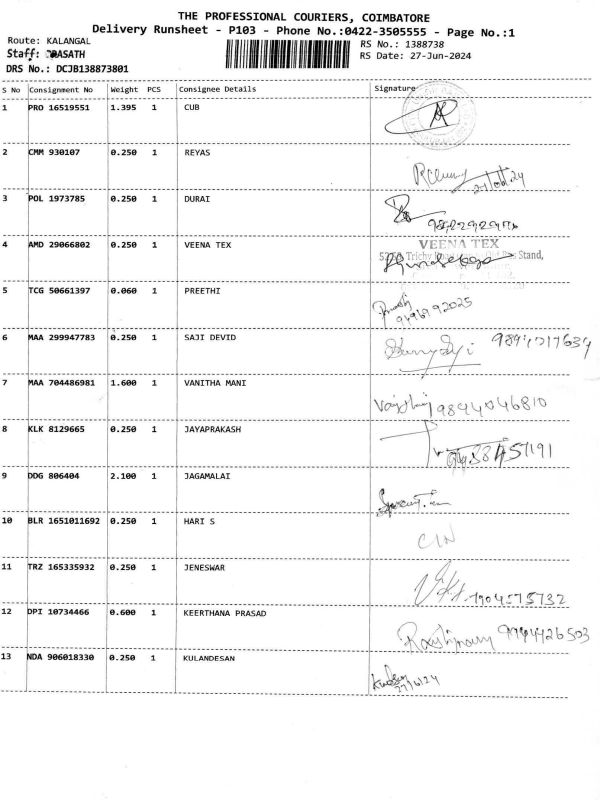 THE PROFESSIONAL COURIERS, COIMBATORE
Delivery Runsheet - P103 - Phone No.:0422-3505555 - Page No.:1
Route: KALANGAL
RS No.: 1388738
Staff:
RS Date: 27-Jun-2024
DRS No.: DCJB138873801
S No Consignment No Weight PCS Consignee Details Signature
1 PRO 16519551 1.395 1 CUB
2 CMM 930107 0.250 1 REYAS
3 POL 1973785 0.250 1 DURAI
4 AMD 29066802 0.250 1 VEENA TEX
VEENA TEX
Trichy Stand,
5 TCG 50661397 0.060 1 PREETHI
6 MAA 299947783 0.250 1 SAJI DEVID
7 MAA 704486981 1.600 1 VANITHA MANI
8 KLK 8129665 0.250 1 JAYAPRAKASH
9 DDG 806404 2.100 1 JAGAMALAI
10 BLR 1651011692 0.250 1 HARI S
11 TRZ 165335932 0.250 1 JENESWAR
12 DPI 10734466 0.600 1 KEERTHANA PRASAD
13 NDA 906018330 0.250 1 KULANDESAN
27/6/24